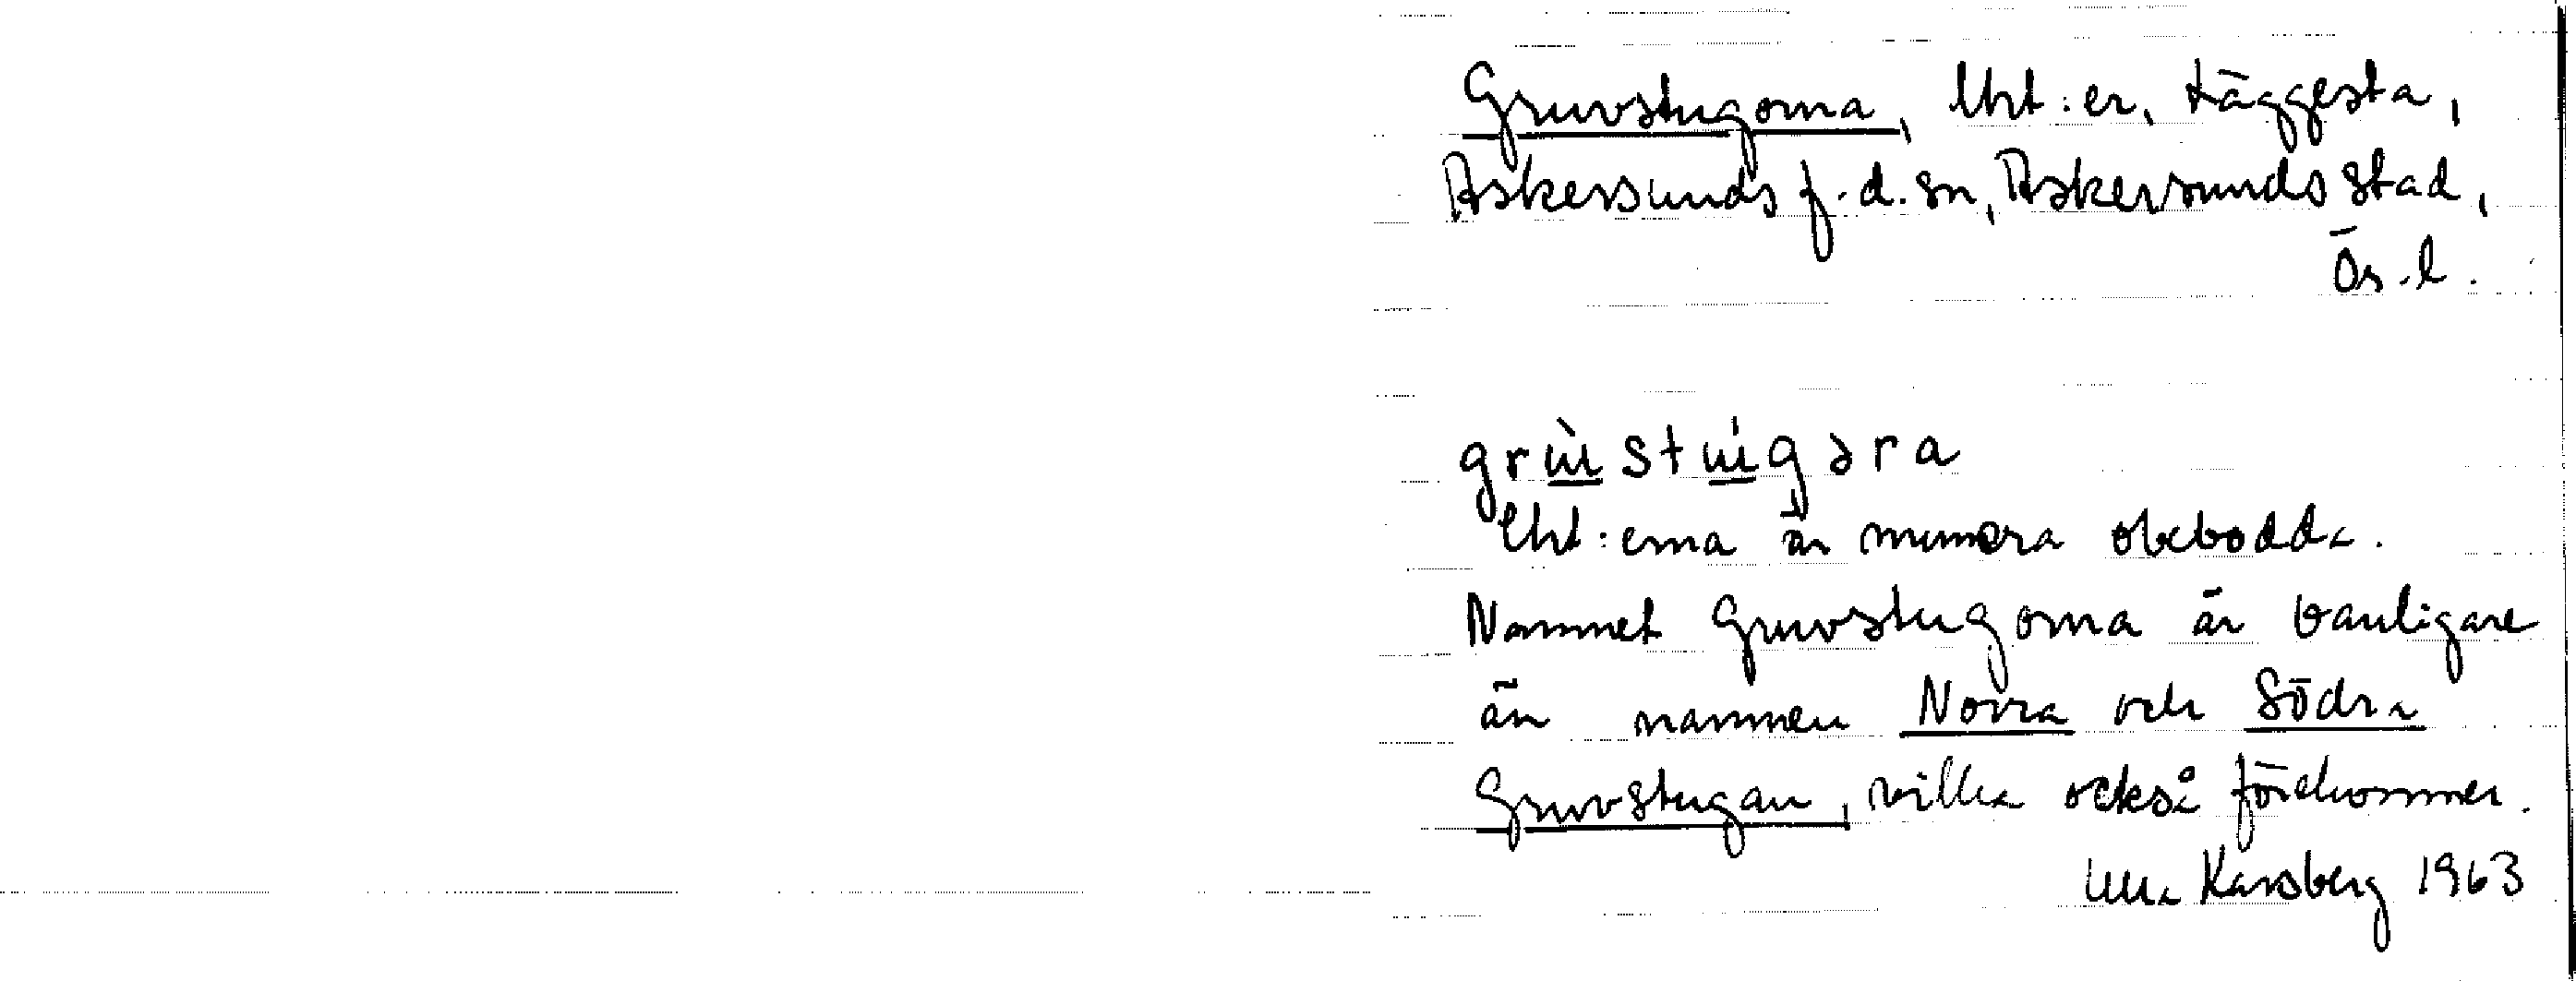 Gruvstugorna, lht:er, Häggesta,
Askersunds f.d. sn, Askersunds stad,
Ör. l.
grùstúgəra
Lht:erna är numera obebodda.
Namnet Gruvstugorna är vanligare
än namnen Norra och Södra
Gruvstugan, vilka också förekommer.
Ulla Karsberg 1963